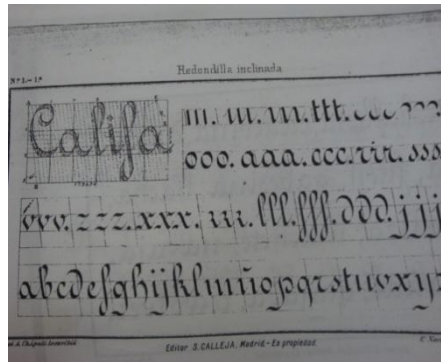 Nº 1.-1ª
Redondilla inclinada
Califa
ııı. ııı. ııı. ttt.
ooo. aaa. ccc. rir. sss
vvv. zzz. xxx. lll. fff. ddd. jjj
abcdefghijklmnñopqrstuvxyz
Editor S. CALLEJA. Madrid-Es propiedad.